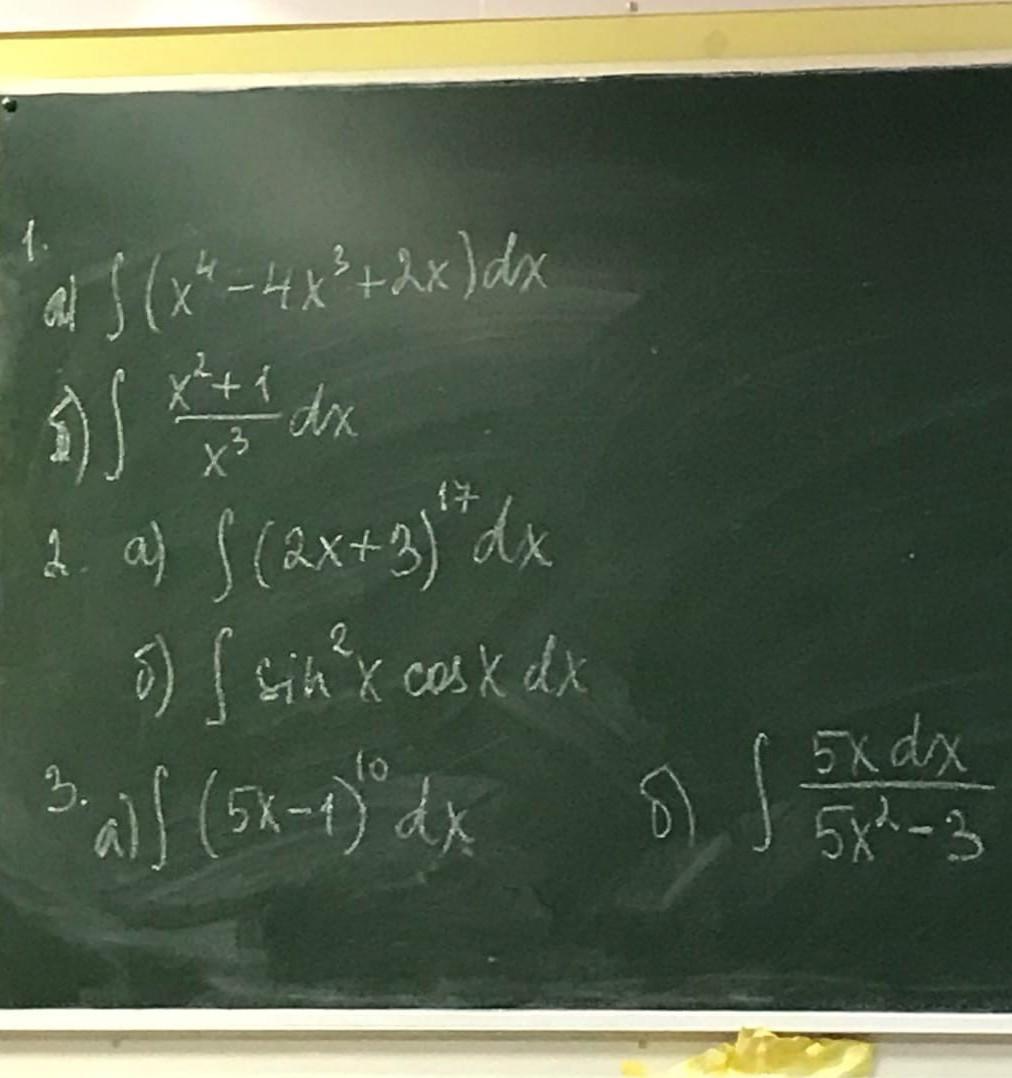 1.
а) ∫(x⁴-4x³+2x)dx
б) ∫ (x²+1)/x³ dx
2. а) ∫(2x+3)¹⁷dx
б) ∫ sin²x cosx dx
3. а) ∫(5x-1)¹⁰dx б) ∫ 5x dx/(5x²-3)